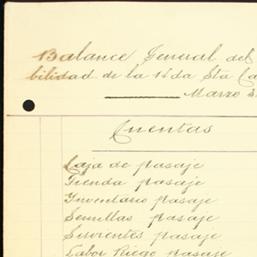 Balance General del
bilidad de la Hda Sta Ca
Marzo 3
Cuentas
Caja de pasaje
Tienda pasaje
Inventario pasaje
Semillas pasaje
Sirvientes pasaje
Labor Riego pasaje